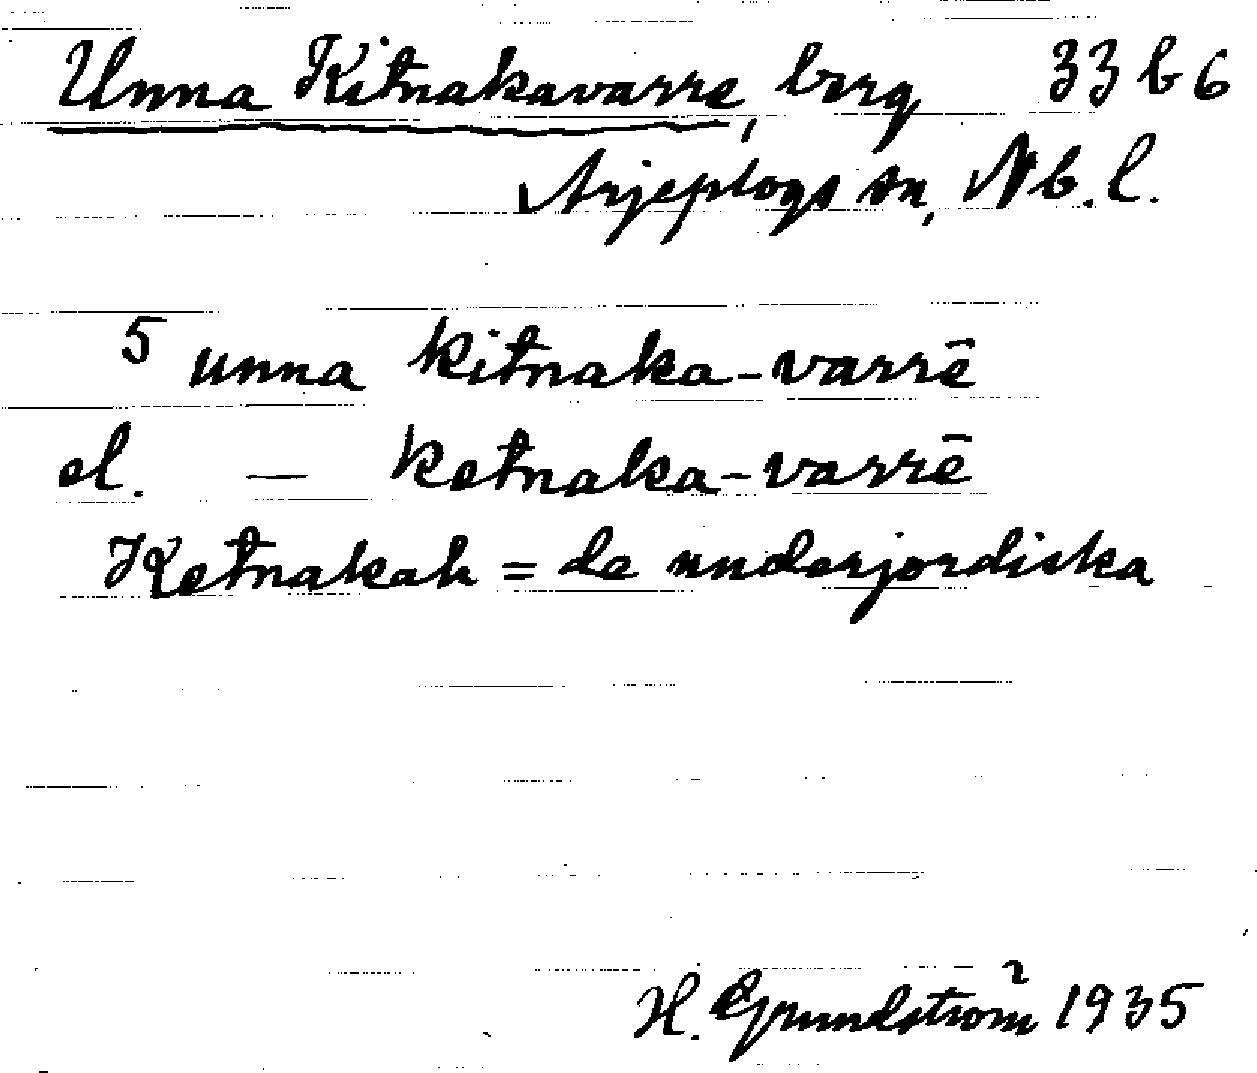 Unna Kitnakavarre, berg 33 b 6
Arjeplogs sn, Nb. l.
5 unna kit̄naka-varrē
el. — ket̄naka-varrē
Ket̄nakah = de underjordiska
H. Grundström 1935